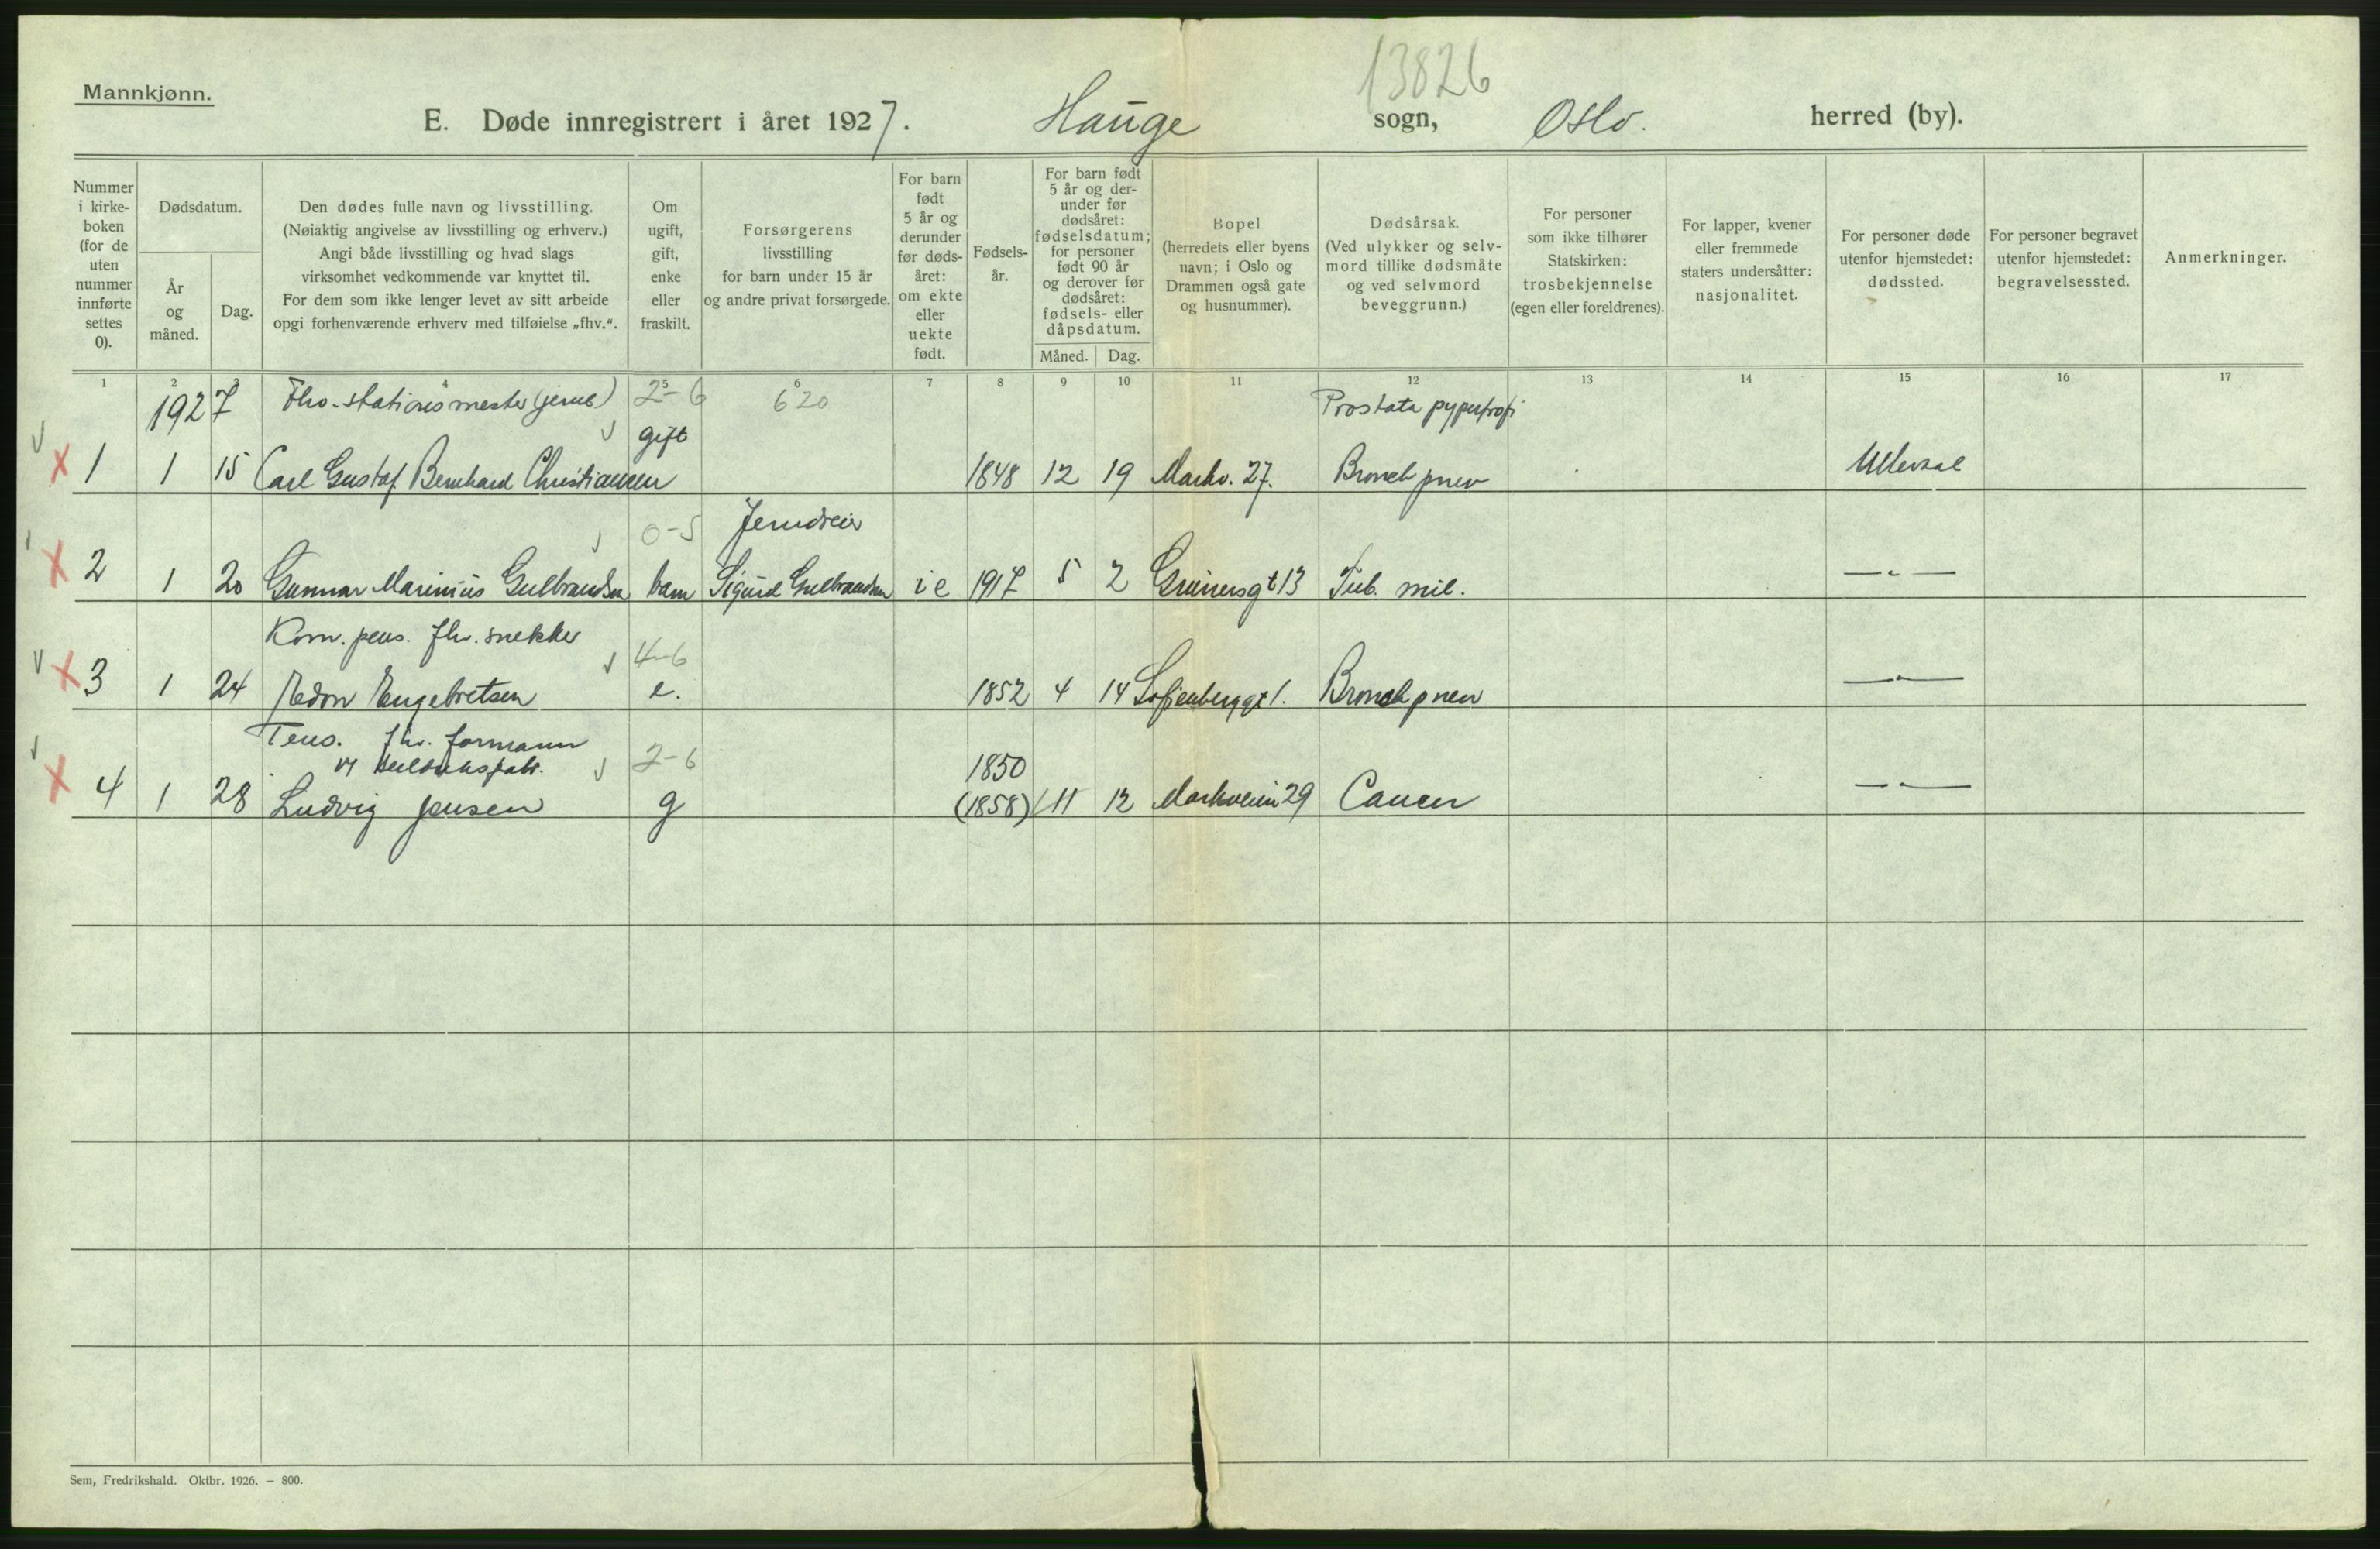 13826
Mannkjønn.
E. Døde innregistrert i året 1927. Hauge sogn, Oslo. herred (by).
Nummer i kirke- boken (for de uten nummer innførte settes 0).
Dødsdatum.
År og måned.
Dag.
Den dødes fulle navn og livsstilling.
(Nøiaktig angivelse av livsstilling og erhverv.)
Angi både livsstilling og hvad slags
virksomhet vedkommende var knyttet til.
For dem som ikke lenger levet av sitt arbeide
opgi forhenværende erhverv med tilføielse „fhv.“.
Om ugift, gift, enke eller fraskilt.
Forsørgerens
livsstilling
for barn under 15 år
og andre privat forsørgede.
For barn født 5 år og derunder før døds- året: om ekte eller uekte født.
Fødsels- år.
For barn født 5 år og der- under før dødsåret: fødselsdatum; for personer født 90 år og derover før dødsåret: fødsels- eller dåpsdatum.
Måned. Dag.
Bopel
(herredets eller byens
navn; i Oslo og
Drammen også gate
og husnummer).
Dødsårsak.
(Ved ulykker og selv-
mord tillike dødsmåte
og ved selvmord
beveggrunn.)
For personer
som ikke tilhører
Statskirken:
trosbekjennelse
(egen eller foreldrenes).
For lapper, kvener
eller fremmede
staters undersåtter:
nasjonalitet.
For personer døde
utenfor hjemstedet:
dødssted.
For personer begravet
utenfor hjemstedet:
begravelsessted.
Anmerkninger.
1 2 3 4 5 6 7 8 9 10 11 12 13 14 15 16 17
1927 Fhv. stationsmester (jernb) 2-6 620 Prostata pypertrofi
gift
x 1 1 15 Carl Gustaf Bernhard Christiansen 1848 12 19 Markv. 27. Bronch pnev Ullevaal
0-5 Jerndreier
x 2 1 20 Gunnar Marinius Gulbrandsen barn Sigurd Gulbrandsen i e 1917 5 2 Grünersgt 13 Tub. mil. — " —
Kom. pens. fhv. snekker 4-6
x 3 1 24 Edon Engebretsen e. 1852 4 14 Sofienberggt 1. Bronch pnev — " —
Pens. fhv. formann
2-6 1850
x 4 1 28 Ludvig Jensen g (1858) 11 12 Markveien 29 Cancer — " —
Sem, Fredrikshald. Oktbr. 1926. — 800.